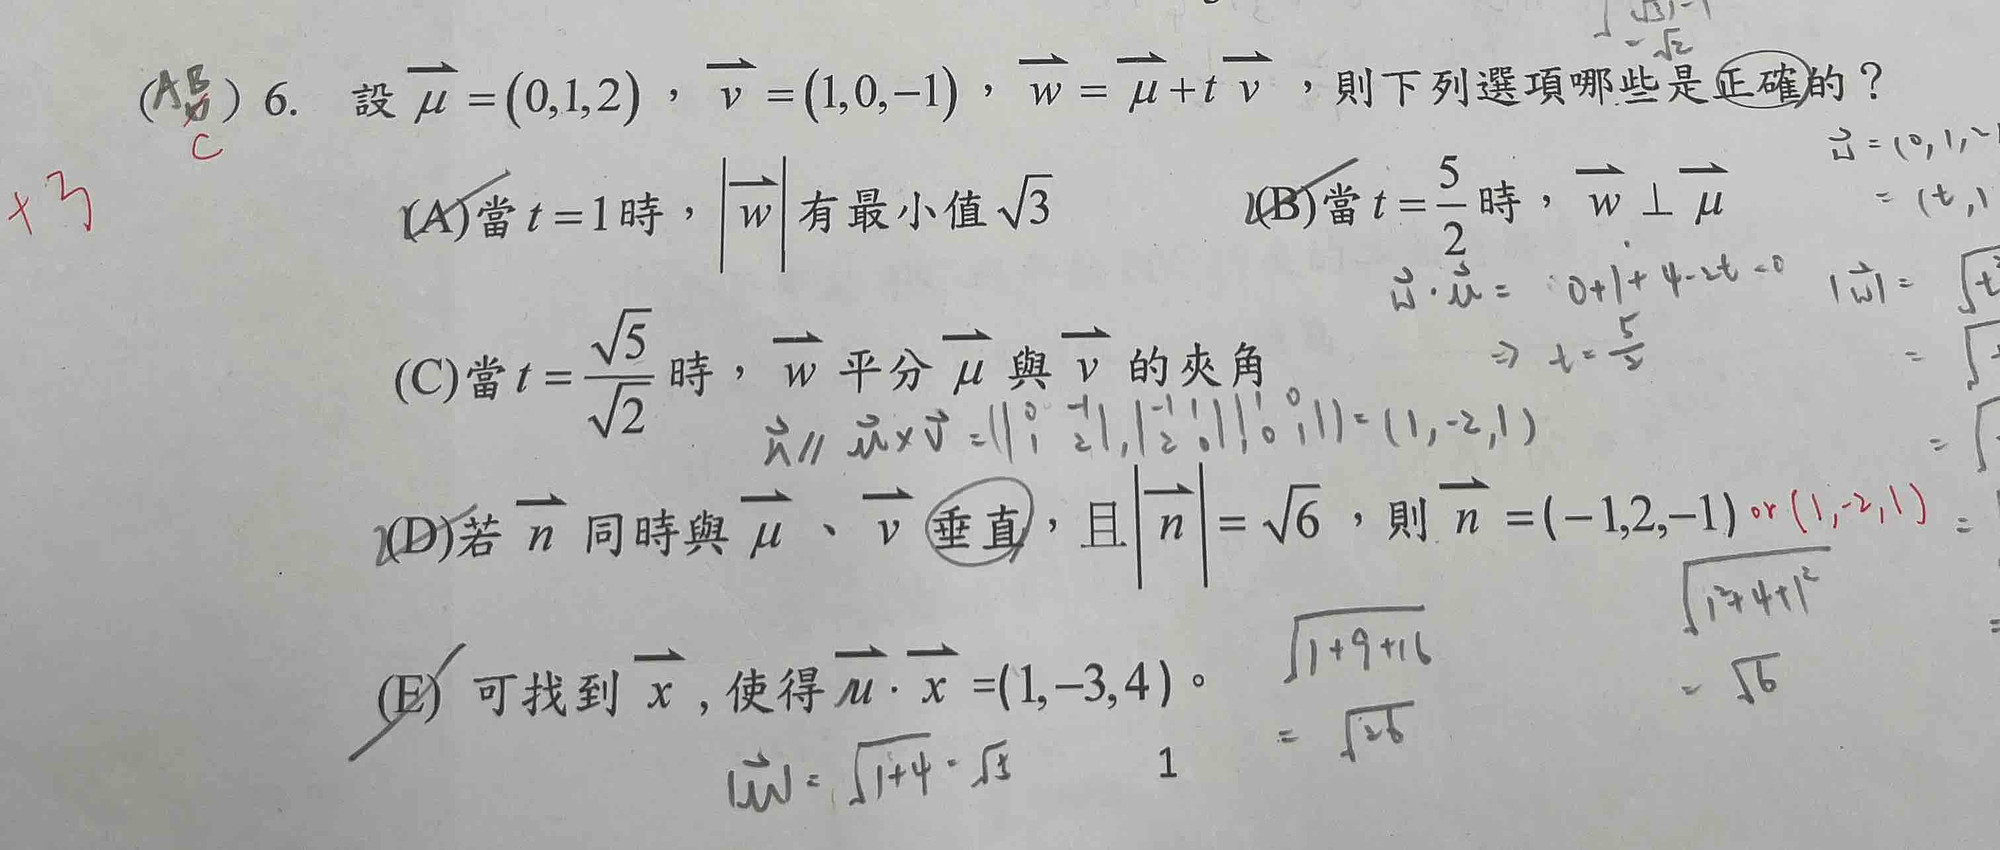 √3)-1
= √2
(AB) 6. 設 μ = (0,1,2)，v = (1,0,−1)，w = μ + t v，則下列選項哪些是正確的？
C
+3
w = (0,1,2
= (t,1
(A)當 t = 1 時，|w| 有最小值 √3 (B)當 t = 5/2 時，w ⊥ μ
w · u = 0+1+4-2t=0
⇒ t = 5/2
|w| = √t²
(C)當 t = √5/√2 時，w 平分 μ 與 v 的夾角
n // u × v = (|0 -1 1 2|, |-1 1 2 0|, |1 0 0 1|) = (1,-2,1)
(D)若 n 同時與 μ、v 垂直，且 |n| = √6，則 n = (−1,2,−1) or (1,-2,1)
√1²+4+1²
= √6
(E) 可找到 x ,使得 μ · x =(1,−3,4)。
√1+9+16
= √26
|u| = √1+4 = √5
1